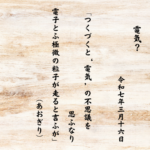 電気？
令和七年三月十六日
「つくづくと、電気、の不思議を
思ふなり
電子とふ極微の粒子が走ると言ふが」
「あおぎり」